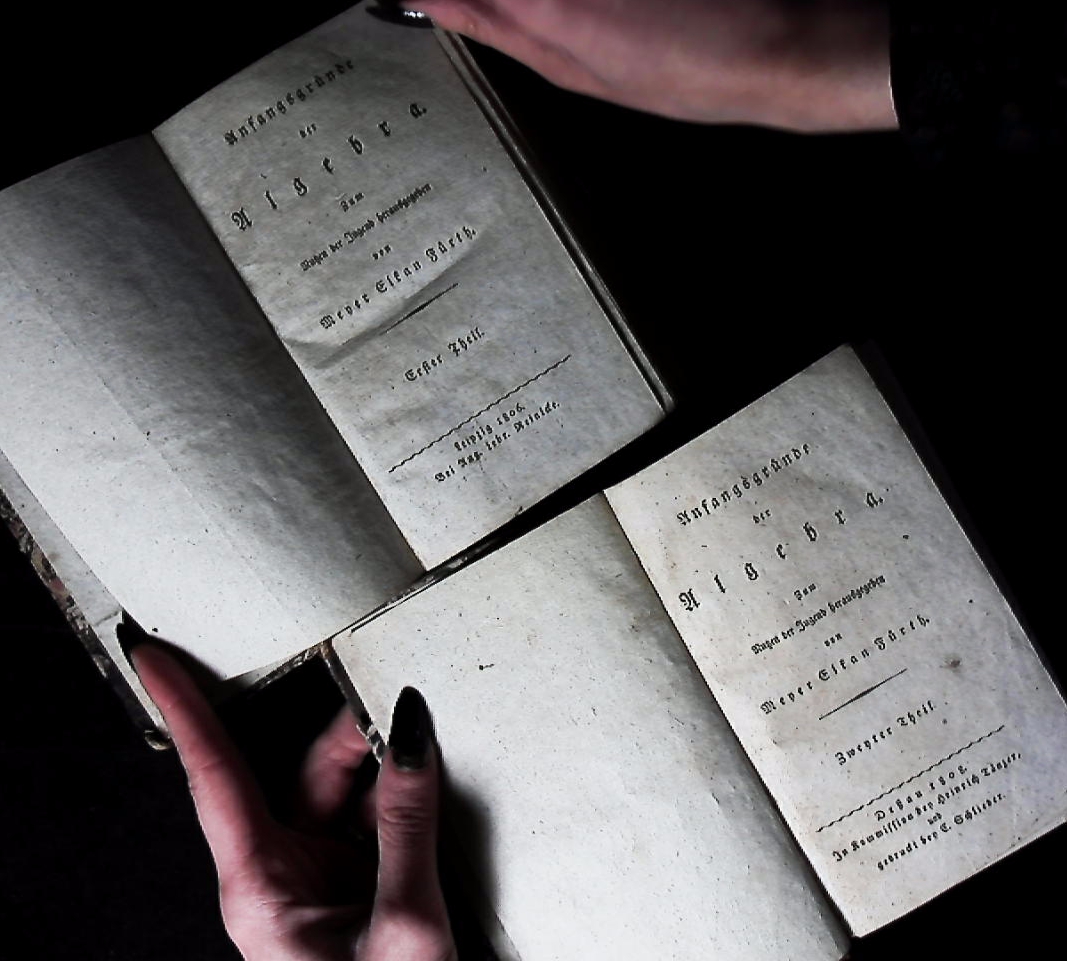 Anfangsgründe
der
Algebra.
Zum
Nutzen der Jugend herausgegeben
von
Meyer Elkan Fürth.
Erster Theil.
Leipzig 1806.
Bei Aug. Lebr. Reinicke.
Anfangsgründe
der
Algebra.
Zum
Nutzen der Jugend herausgegeben
von
Meyer Elkan Fürth.
Zweyter Theil.
Deßau 1808.
In Kommission bey Heinrich Tänzer,
und
gedruckt bey C. Schlieder.